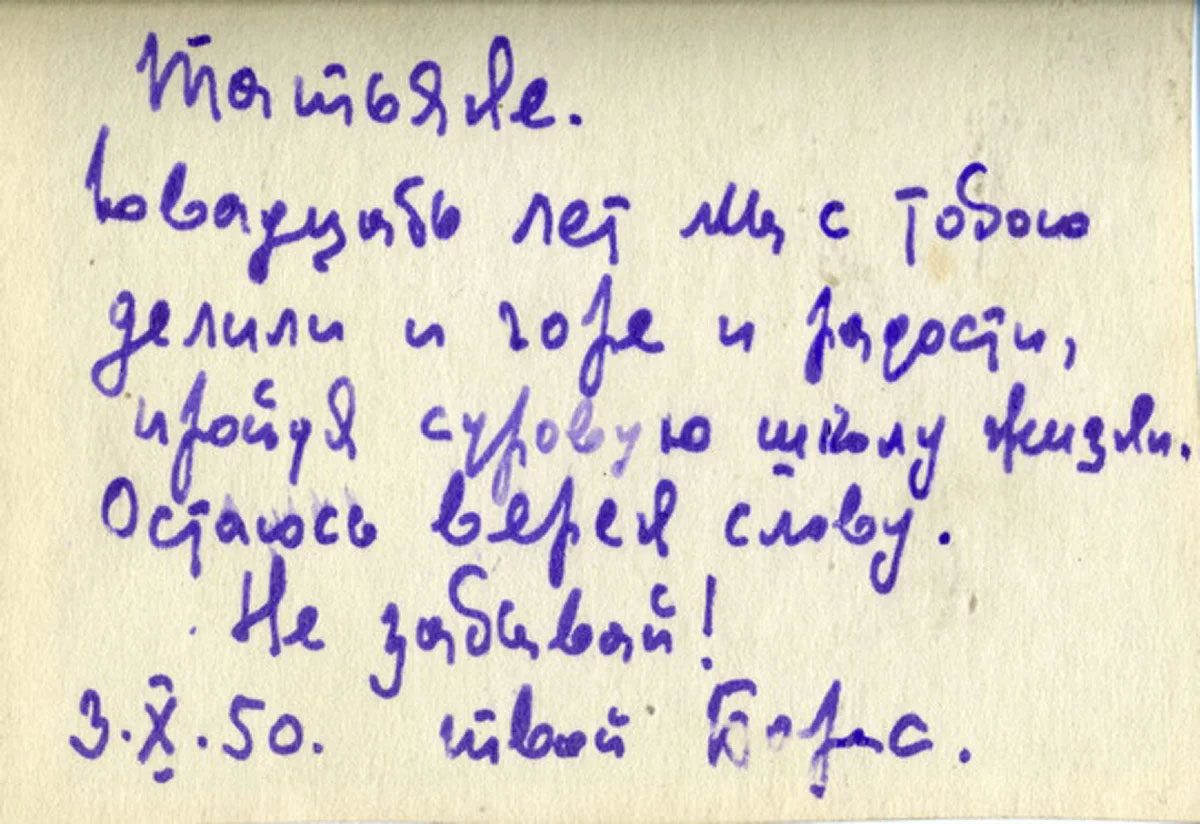 Татьяне.
Двадцать лет мы с тобою
делили и горе и радости,
пройдя суровую школу жизни.
Остаюсь верен слову.
Не забывай!
3.X.50. твой Борис.